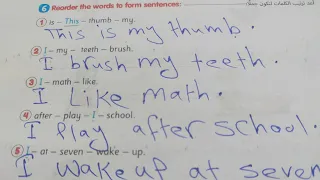 6 Reorder the words to form sentences:
1 is – This – thumb – my.
This is my thumb.
2 I – my – teeth – brush.
I brush my teeth.
3 I – math – like.
I Like math.
4 after – play – I – school.
I play after school.
5 I – at – seven – wake – up.
I wake up at seven